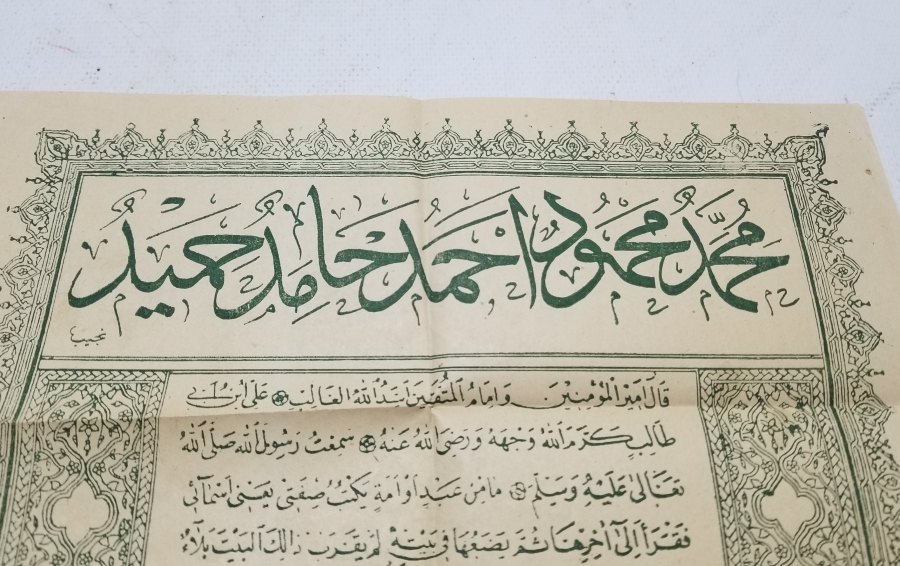 محمد محمود احمد حامد حميد
نجيب
قَالَ اَمِيرُ الْمُؤْمِنِينَ وَاِمَامُ الْمُتَّقِينَ اَسَدُ اللهِ الْغَالِبِ عَلِى ابْنِ اَبِى
طَالِبٍ كَرَّمَ اللهُ وَجْهَهُ وَرَضِىَ اللهُ عَنْهُ سَمِعْتُ رَسُولَ اللهِ صَلَّى اللهُ
تَعَالَى عَلَيْهِ وَسَلَّمَ مَا مِنْ عَبْدٍ اَوْ اَمَةٍ يَكْتُبُ صِفَتِى يَعْنِى اَسْمَائِى
فَقَرَأَ اِلَى آخِرِهَا ثُمَّ يَضَعُهَا فِى بَيْتِهِ لَمْ يَقْرَبْ ذَالِكَ الْبَيْتَ بَلَاءٌ